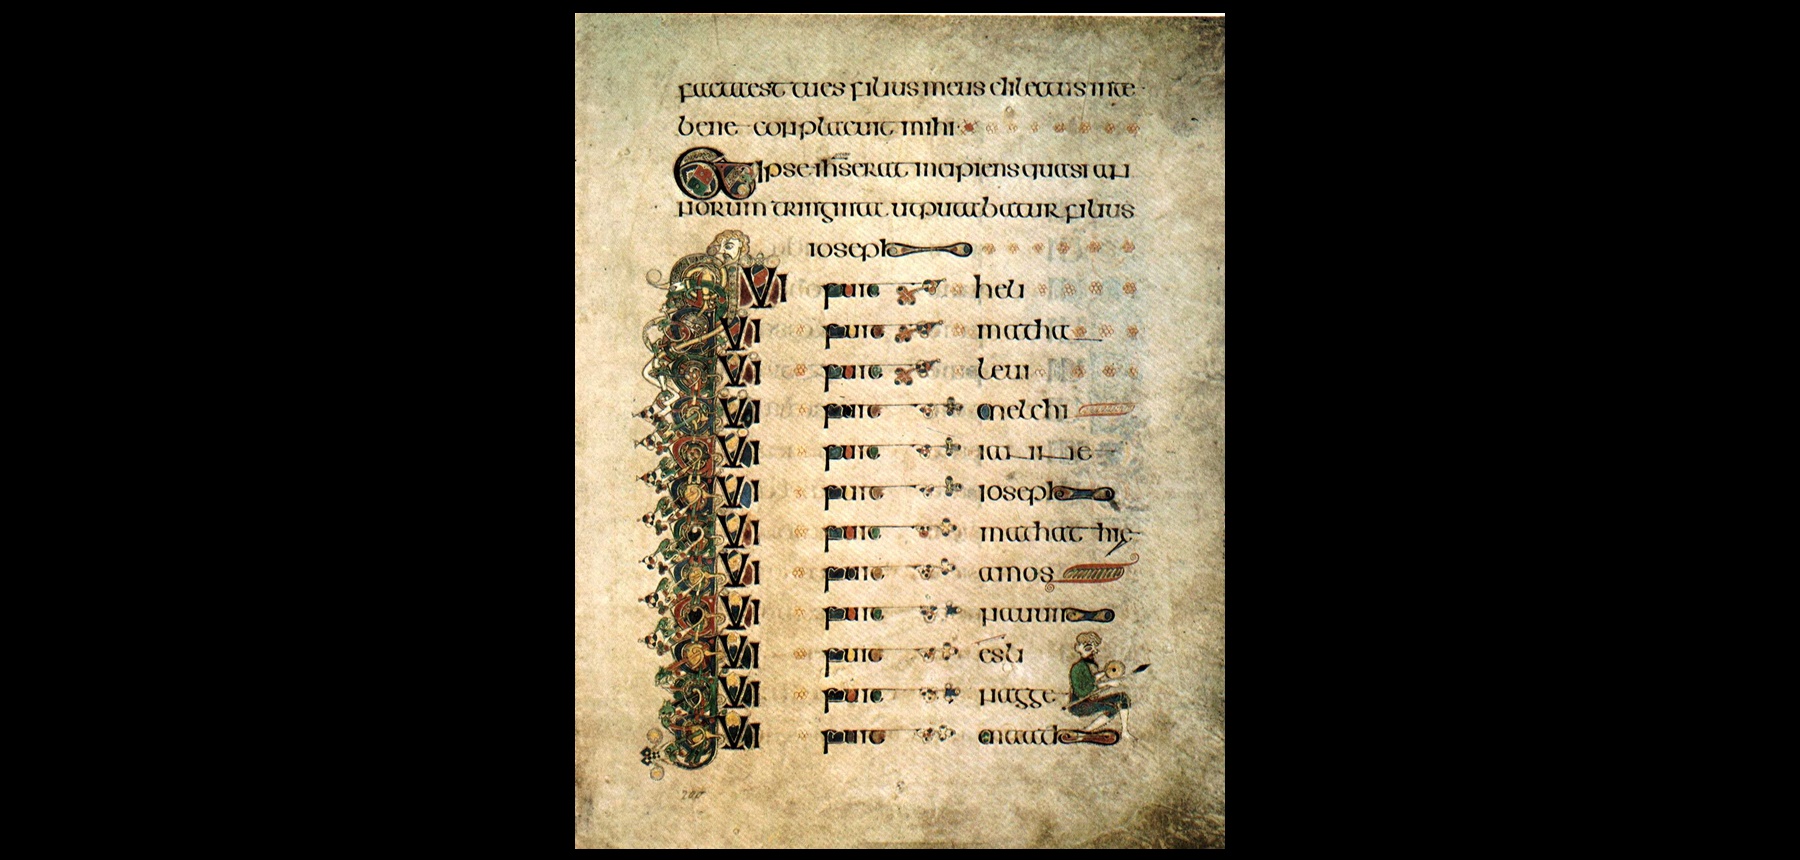 factaest tues filius meus dilectus inte
bene conplacuit mihi
Et ipse ihs erat incipiens quasi an
norum triginta ut putabatur filius
ioseph
QVI fuit heli
QVI fuit matha
QVI fuit leui
QVI fuit melchi
QVI fuit ianne
QVI fuit ioseph
QVI fuit mathathie
QVI fuit amos
QVI fuit nauum
QVI fuit esli
QVI fuit nagge
QVI fuit maath
200